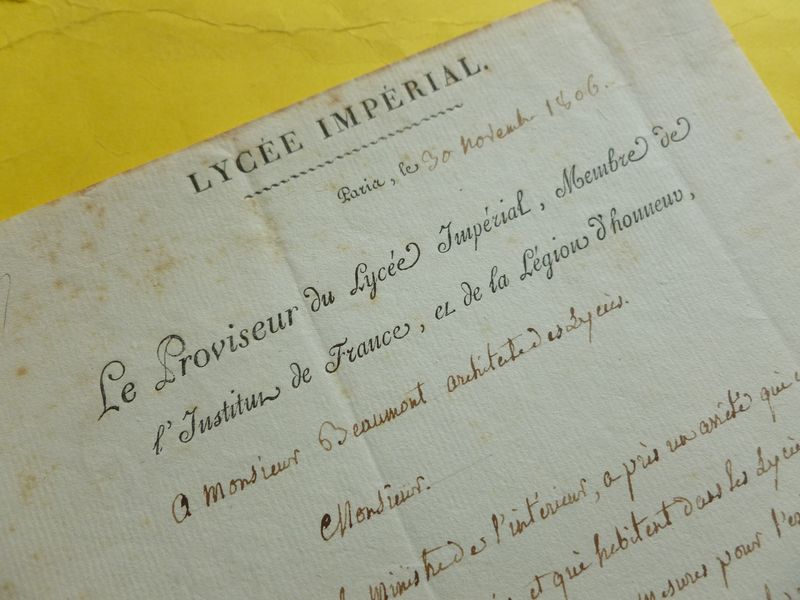 LYCÉE IMPÉRIAL.
Paris, le 30 novembre 1806.
Le Proviseur du Lycée Impérial, Membre de
l'Institut de France, et de la Légion d'honneur,
A Monsieur Beaumont architecte des Lycées.
Monsieur.
Ministre de l'intérieur, a pris un arrêté qui
et qui habitent dans les Lycées
mesures pour